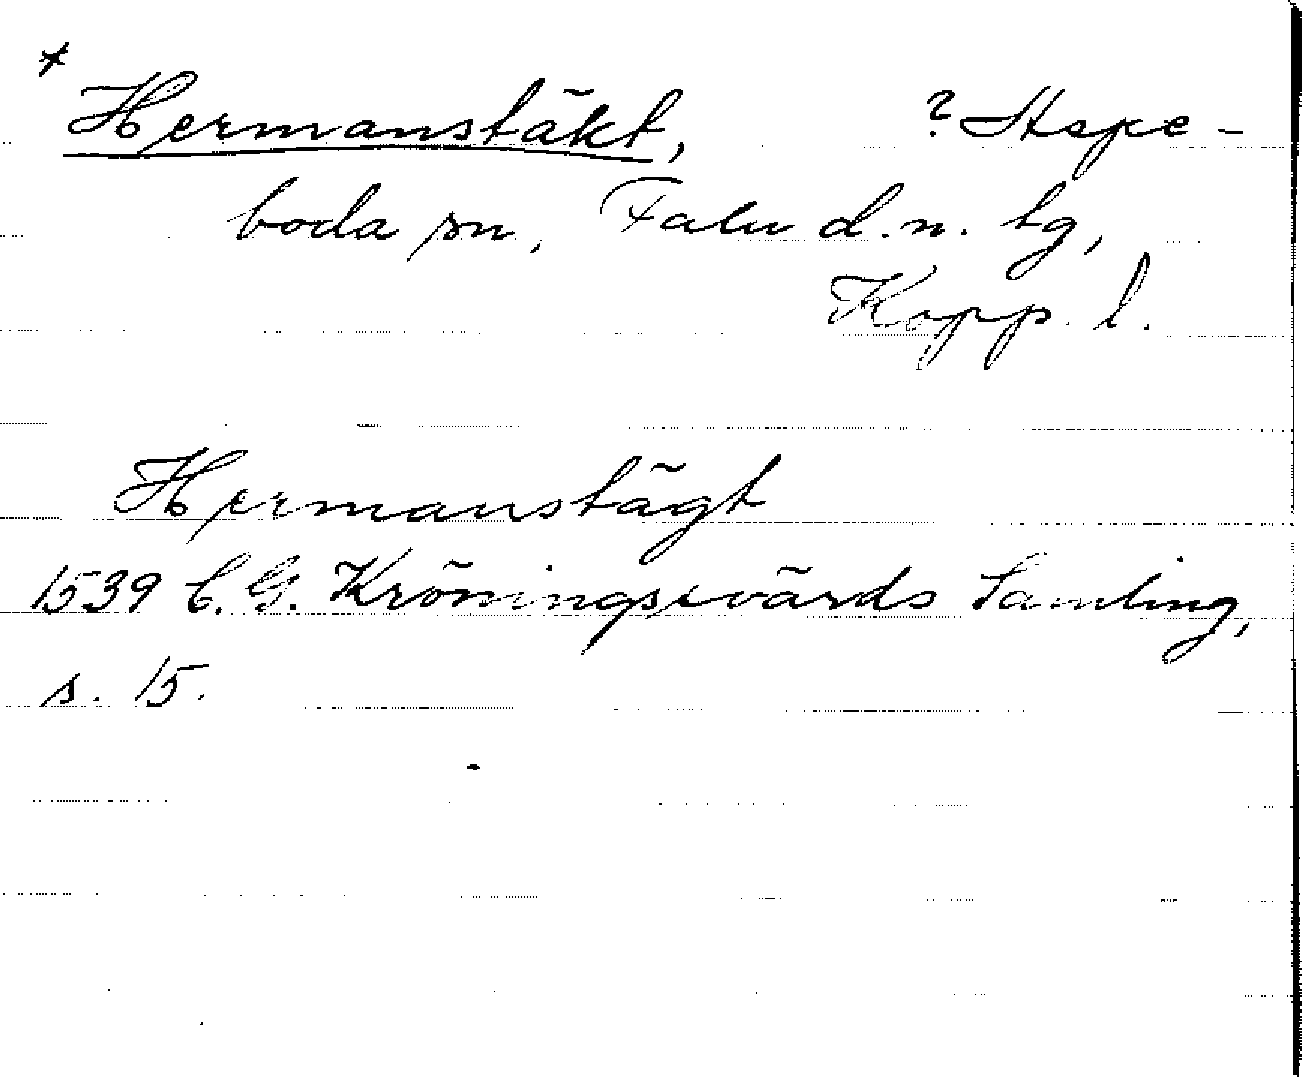 * Hermanstäkt, ? Aspe-
boda sn, Falu d.n. tg,
Kopp. l.
Hermanstägt
1539 C. G. Kröningssvärds Samling,
s. 15.